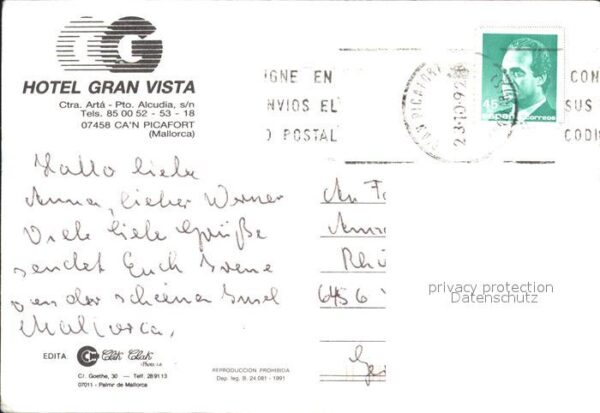 HOTEL GRAN VISTA
Ctra. Artá - Pto. Alcudia, s/n
Tels. 85 00 52 - 53 - 18
07458 CA'N PICAFORT
(Mallorca)
IGNE EN
NVIOS EL
O POSTAL
CON
SUS
CODIG
CA'N PICAFORT
23-10-92
45
España correos
Hallo liebe
Anna, lieber Werner
Viele liebe Grüße
sendet Euch Irene
von der schönen Insel
Mallorca,
An F
Rhö
6456
Ge
privacy protection
Datenschutz
EDITA:
Clik Clak
C/. Goethe, 30 — Telf. 28 91 13
07011 - Palma de Mallorca
REPRODUCCION PROHIBIDA
Dep. leg. B. 24.081 - 1991